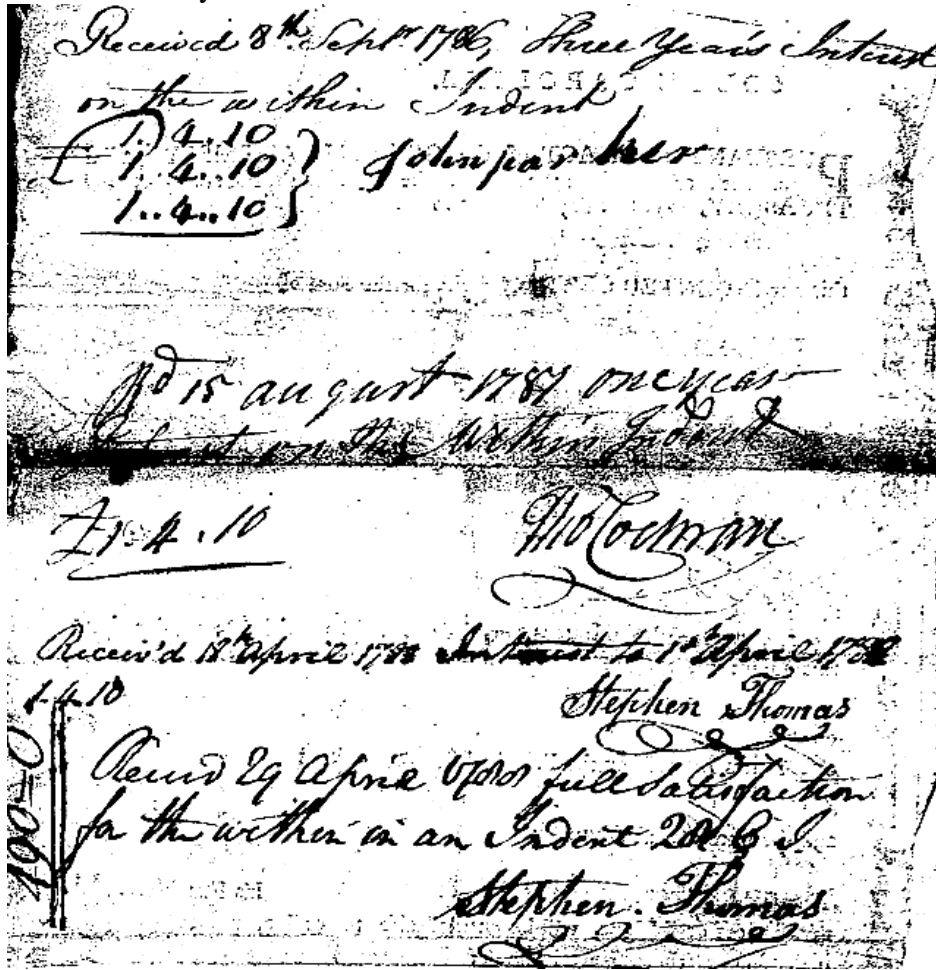 Received 8th Septr 1786, Three Years Interest
on the within Indent
1. 4.. 10
1. 4.. 10
1.. 4.. 10
John par ker
Rd 15 august 1787 one year
Interest on the Within Indent
£1. 4. 10
Tho Cochran
Receiv'd 18th April 1788 Interest to 1st April 1788
1.4.10
Stephen Thomas
Receivd 29 April 1788 full Satisfaction
for the within in an Indent
Stephen. Thomas